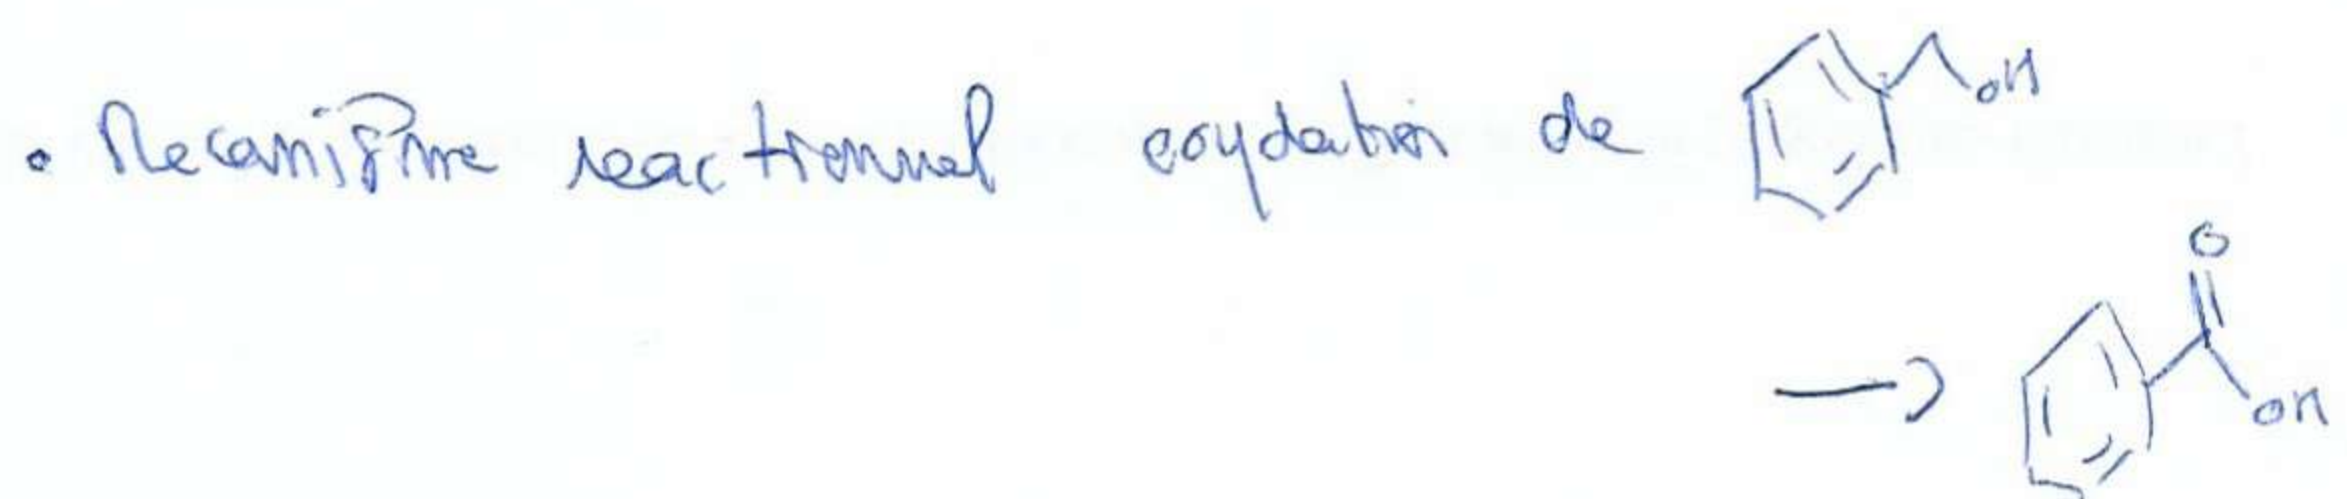 • Mecanisme reactionnel oxydation de OH
O
→ OH